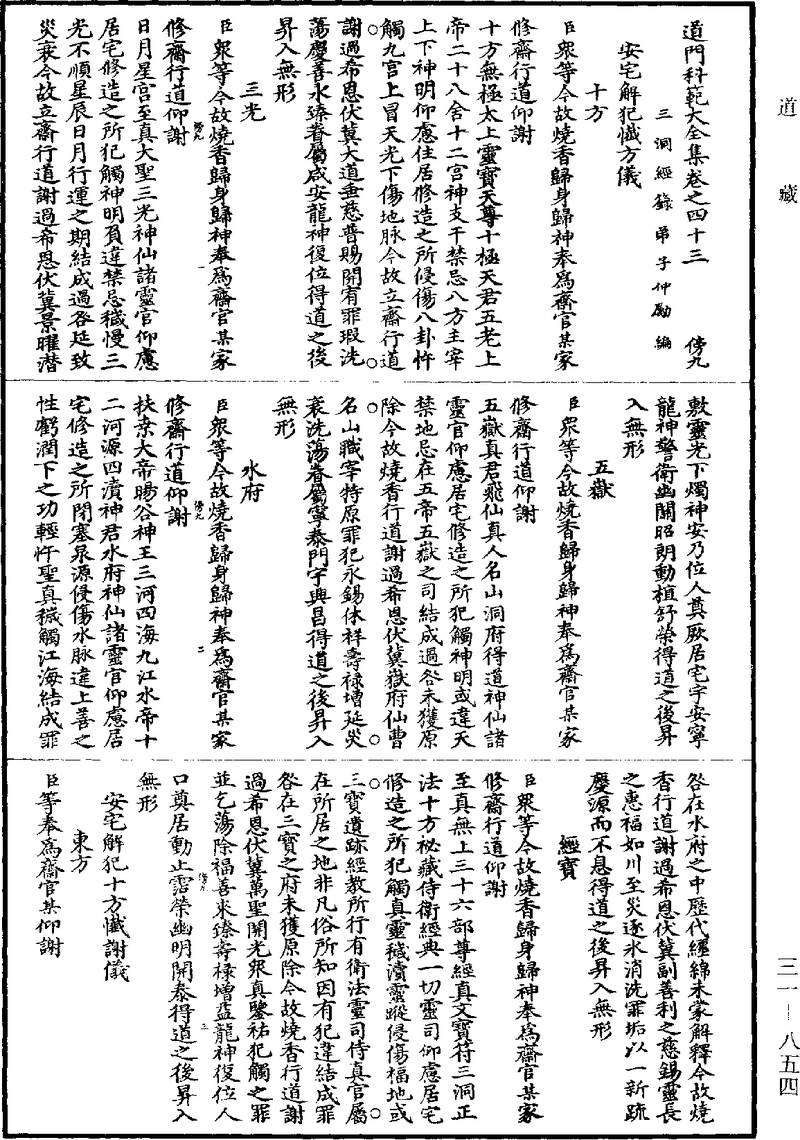 道藏
三一—八五四
道門科範大全集卷之四十三　傍九
三洞經籙弟子仲勵編
安宅解犯懺方儀
十方
臣衆等今故燒香歸身歸神奉爲齋官某家
修齋行道仰謝
十方無極太上靈寶天尊十極天君五老上
帝二十八舍十二宮神支干禁忌八方主宰
上下神明仰慮住居修造之所侵傷八卦忤
觸九宮上冒天光下傷地脉今故立齋行道
謝過希恩伏冀大道垂慈普賜開宥罪瑕洗
蕩慶善永臻眷屬咸安龍神復位得道之後
昇入無形
三光
臣衆等今故燒香歸身歸神奉爲齋官某家
修齋行道仰謝
日月星宮至真大聖三光神仙諸靈官仰慮
居宅修造之所犯觸神明負違禁忌穢慢三
光不順星辰日月行運之期結成過咎延致
災衰今故立齋行道謝過希恩伏冀景曜潛
敷靈光下燭神安乃位人奠厥居宅宇安寧
龍神警衛幽關昭朗動植舒榮得道之後昇
入無形
五嶽
臣衆等今故燒香歸身歸神奉爲齋官某家
修齋行道仰謝
五嶽真君飛仙真人名山洞府得道神仙諸
靈官仰慮居宅修造之所犯觸神明或違天
禁地忌在五帝五嶽之司結成過咎未獲原
除今故燒香行道謝過希恩伏冀嶽府仙曹
名山職宰特原罪犯永錫休祥壽祿增延災
衰洗蕩眷屬寧泰門宇興昌得道之後昇入
無形
水府
臣衆等今故燒香歸身歸神奉爲齋官某家
修齋行道仰謝
扶桒大帝暘谷神王三河四海九江水帝十
二河源四瀆神君水府神仙諸靈官仰慮居
宅修造之所閉塞泉源侵傷水脉違上善之
性虧潤下之功輕忤聖真穢觸江海結成罪
咎在水府之中歷代纏綿未蒙解釋今故燒
香行道謝過希恩伏冀副善利之慈錫靈長
之惠福如川至災逐氷消洗罪垢以一新疏
慶源而不息得道之後昇入無形
經寶
臣衆等今故燒香歸身歸神奉爲齋官某家
修齋行道仰謝
至真無上三十六部尊經真文寶符三洞正
法十方祕藏侍衛經典一切靈司仰慮居宅
修造之所犯觸真靈穢瀆靈蹤侵傷福地或
三寶遺跡經教所行有衛法靈司侍真官屬
在所居之地非凡俗所知因有犯違結成罪
咎在三寶之府未獲原除今故燒香行道謝
過希恩伏冀萬聖開光衆真鑒祐犯觸之罪
並乞蕩除福善來臻壽祿增益龍神復位人
口奠居動止霑榮幽明開泰得道之後昇入
無形
安宅解犯十方懺謝儀
東方
臣等奉爲齋官某仰謝